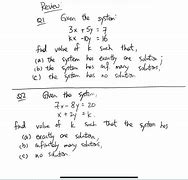 Review
Q1 Given the system:
3x + 5y = 7
kx - 10y = 16
find value of k such that,
(a) the system has exactly one solution;
(b) the system has inf. many solutions;
(c) the system has no solution.
Q2 Given the system:
7x - 8y = 20
x + 2y = k
find value of k such that the system has
(a) exactly one solution,
(b) infinitely many solutions,
(c) no solution.